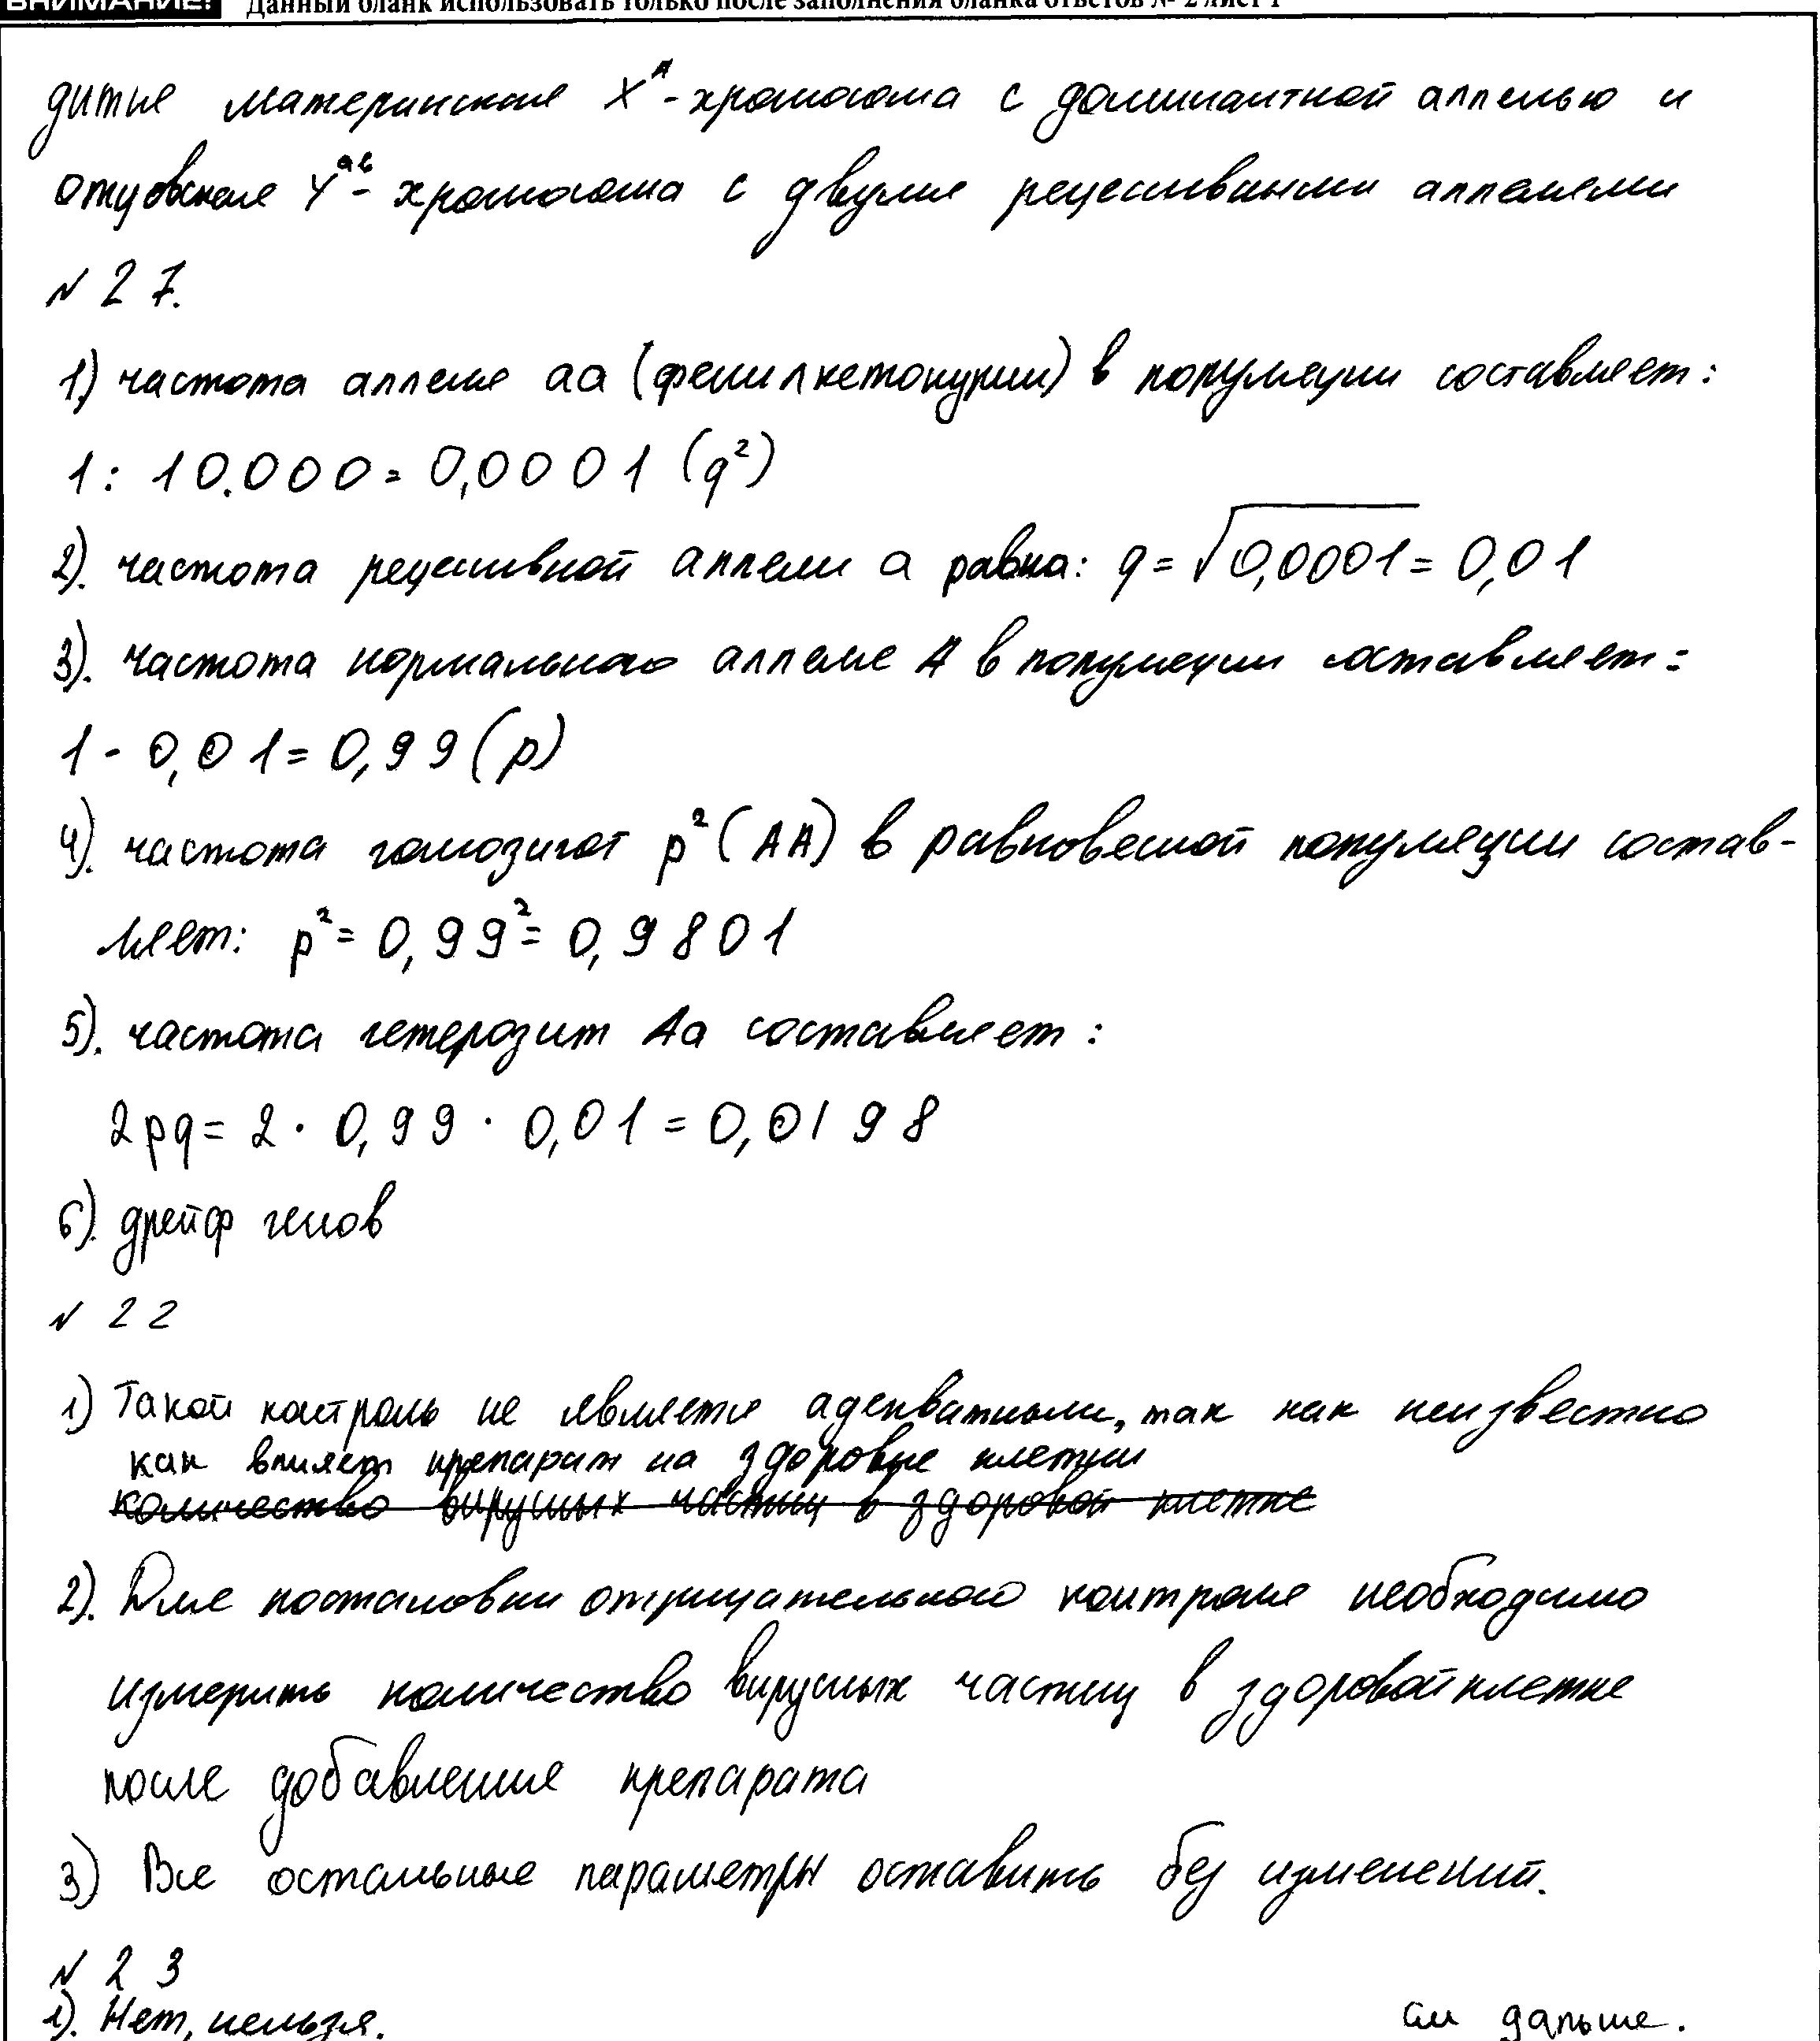 ВНИМАНИЕ! Данный бланк использовать только после заполнения бланка ответов № 2 лист 1
дитые материнская X^A-хромосома с доминантной аллелью и
отцовская Y^ав- хромосома с двумя рецессивными аллелями
№ 27.
1) частота аллеля аа (фенилкетонурии) в популяции составляет:
1: 10.000 = 0,0001 (q²)
2). частота рецессивной аллели а равна: q = √0,0001 = 0,01
3). частота нормального аллеля А в популяции составляет:
1 - 0,01 = 0,99 (p)
4). частота гомозигот p² (АА) в равновесной популяции состав-
ляет: p² = 0,99² = 0,9801
5). частота гетерозигт Аа составляет:
2pq = 2 · 0,99 · 0,01 = 0,0198
6). дрейф генов
№ 22
1) Такой контроль не является адекватным, так как неизвестно
как влияет препарат на здоровые клетки
количество вирусных частиц в здоровой клетке
2). Для постановки отрицательного контроля необходимо
измерить количество вирусных частиц в здоровой клетке
после добавления препарата
3) Все остальные параметры оставить без изменений.
№ 23
1). Нет, нельзя.
см дальше.